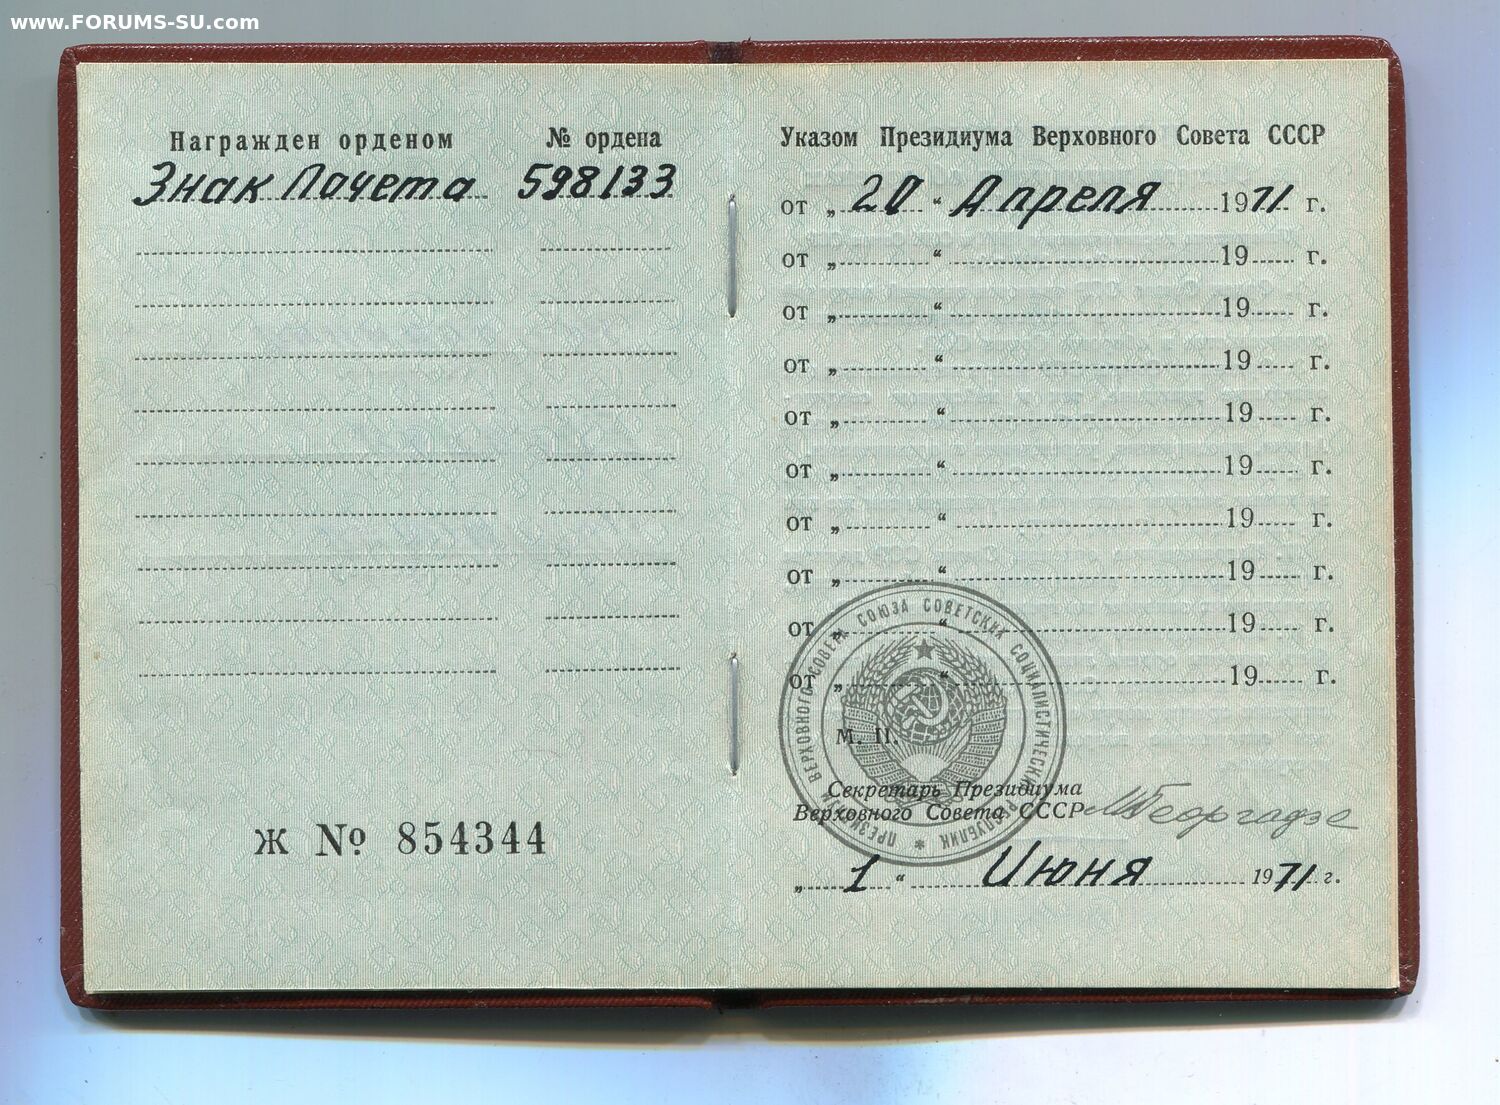 www.FORUMS-SU.com
Награжден орденом № ордена
Знак Почета 598133
Ж № 854344
Указом Президиума Верховного Совета СССР
от „ 20 “ Апреля 1971 г.
от „ “ 19 г.
от „ “ 19 г.
от „ “ 19 г.
от „ “ 19 г.
от „ “ 19 г.
от „ “ 19 г.
от „ “ 19 г.
от „ “ 19 г.
от „ “ 19 г.
ПРЕЗИДИУМ ВЕРХОВНОГО СОВЕТА СОЮЗА СОВЕТСКИХ СОЦИАЛИСТИЧЕСКИХ РЕСПУБЛИК
М. П.
Секретарь Президиума
Верховного Совета СССР МГеоргадзе
„ 1 “ Июня 1971 г.